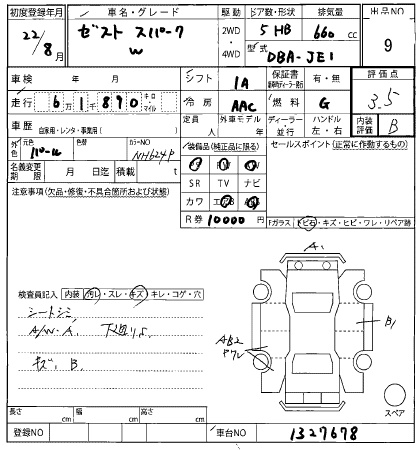 初度登録年月 車名・グレード 駆動 ドア数・形状 排気量 出品NO
22/8月 ゼスト スパーク W 2WD・4WD 5 HB 660 cc 9
型式 DBA-JE1
車検 年 月 シフト 1A 保証書 有・無 評価点
走行 6万1千890 キロ・マイル 冷房 AAC 燃料 G 3.5
車歴 自家用・レンタ・事業用( ) 定員 人 外車モデル 年 ディーラー・並行 ハンドル 左・右 内装評価 B
外色 元色 パール 色替 カラーNO NH624P
装備品(純正品に限る) セールスポイント(正常に作動するもの)
名義変更期限 月 日迄 積載 t
SR TV ナビ
注意事項(欠品・修復・不具合箇所および状態)
カワ エアB
R券 10000円
Fガラス トビ石・キズ・ヒビ・ワレ・リペア跡
A1
検査員記入 内装 汚レ・スレ・キズ・キレ・コゲ・穴
シートシミ
A/W-A 下廻りS
キズ, B
AB2
ヤブレ
B1
スペア
長さ cm 幅 cm 高さ cm
登録NO 車台NO 1327678